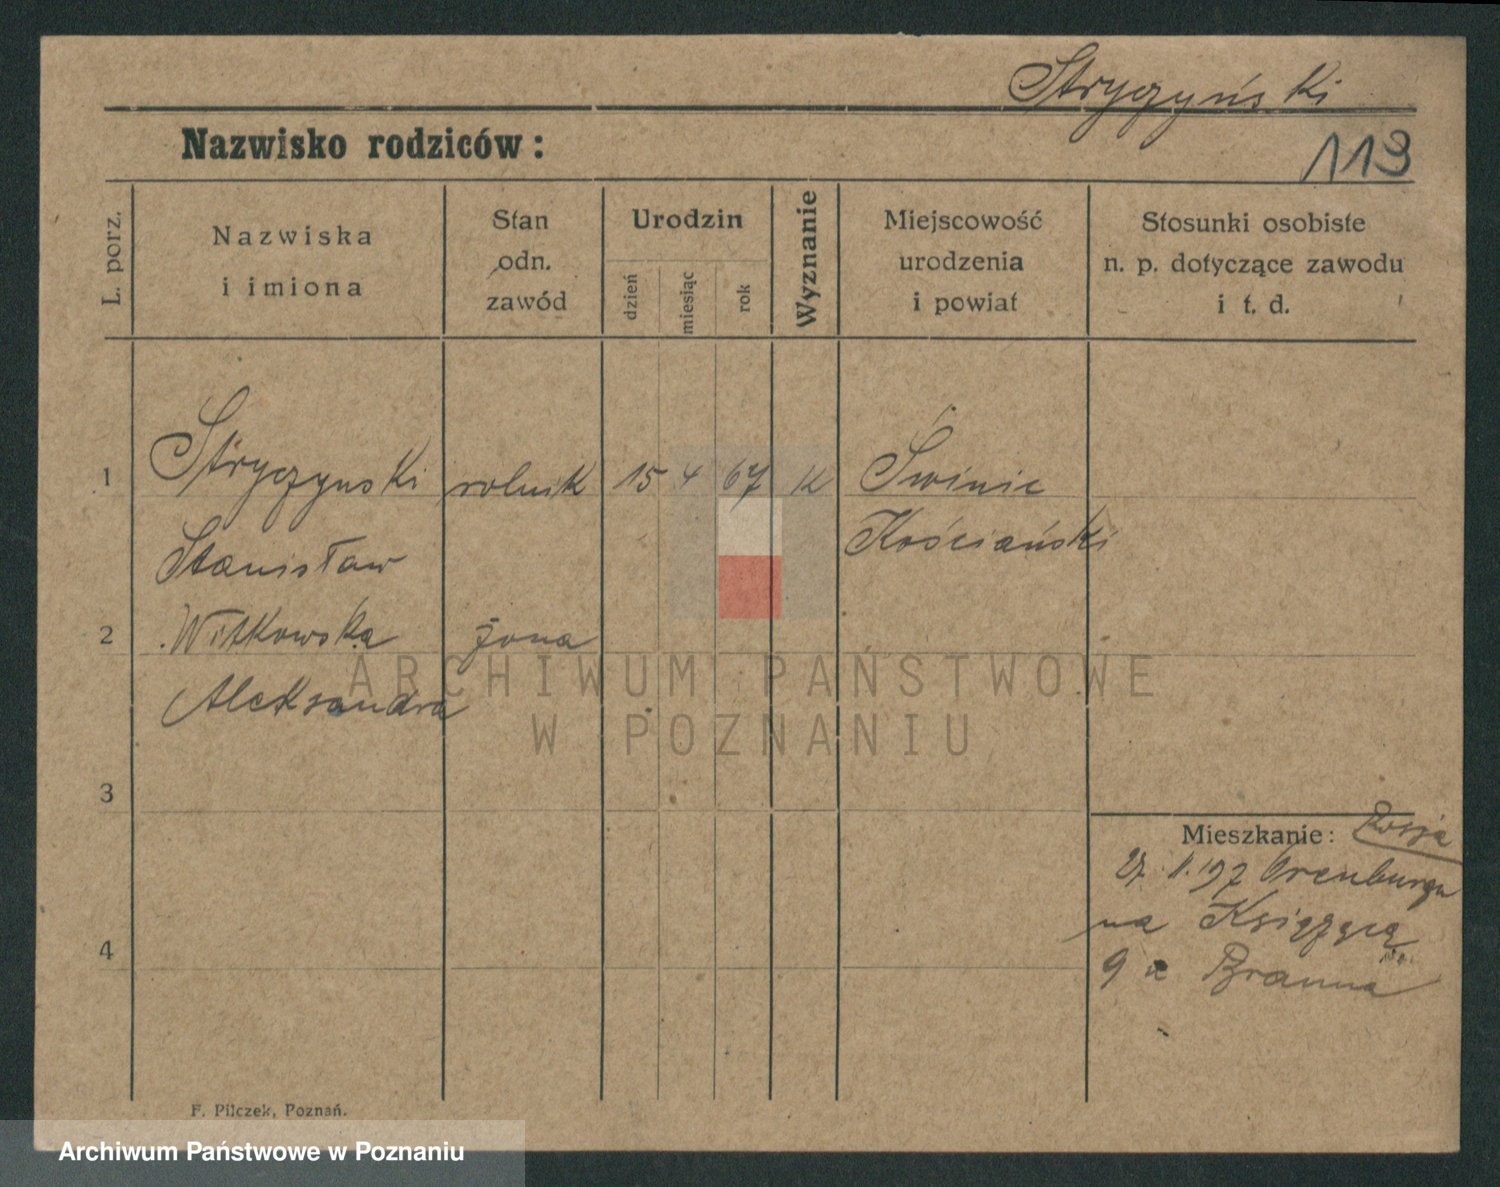 Stryczyński
Nazwisko rodziców:
113
L. porz.
Nazwiska
i imiona
Stan
odn.
zawód
Urodzin
dzień
miesiąc
rok
Wyznanie
Miejscowość
urodzenia
i powiat
Stosunki osobiste
n. p. dotyczące zawodu
i t. d.
1 Stryczynski rolnik 15 4 67 k Świnie
Stanisław Kościański
2 Witkowska żona
Aleksandra
ARCHIWUM PAŃSTWOWE
W POZNANIU
3
Mieszkanie: Rosja
27. Orenburga
na Księżycą
9 Brauna
4
F. Pilczek, Poznań.
Archiwum Państwowe w Poznaniu